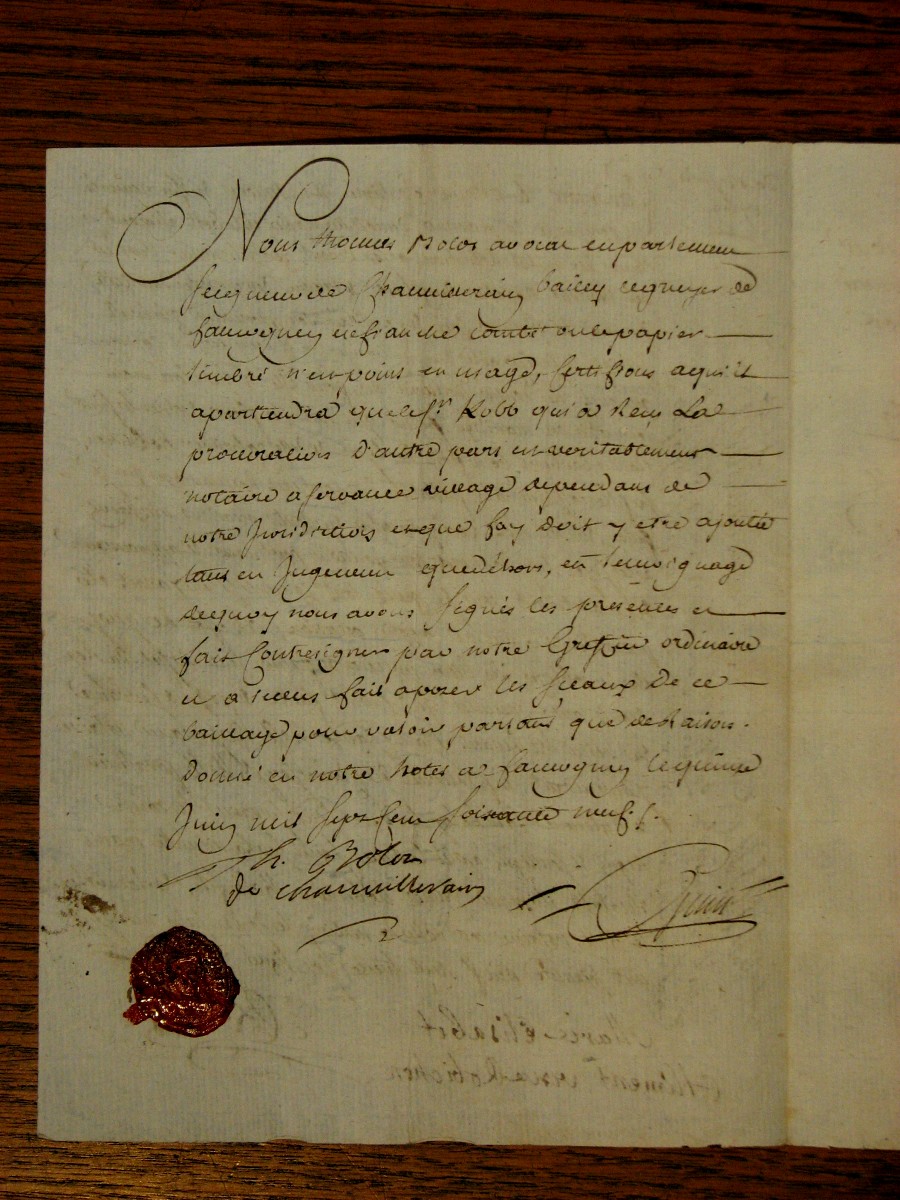 Nous thomas Bolot avocat en parlement
seigneur de Chauvillerain bailly
faucogney en franche comté ou le papier
timbré n'est point en usage, certifions a qu'il
apartiendra que le sr. Robb qui a Recu La
procuration d'autre part est veritablement
notaire a servance village dependant de
notre Jurisdiction et que foy doit y etre ajoutée
tant en Jugement que dehors, en temoignage
de quoy nous avons signés les presentes et
fait Contresigner par notre Greffier ordinaire
et a icelles fait aposer les sceaux de ce
bailliage pour valoir partout que de Raison.
Donné en notre hotel a faucogney le quinze
Juin mil sept cent soixante neuf.
Th. Bolot
de chauvillerain